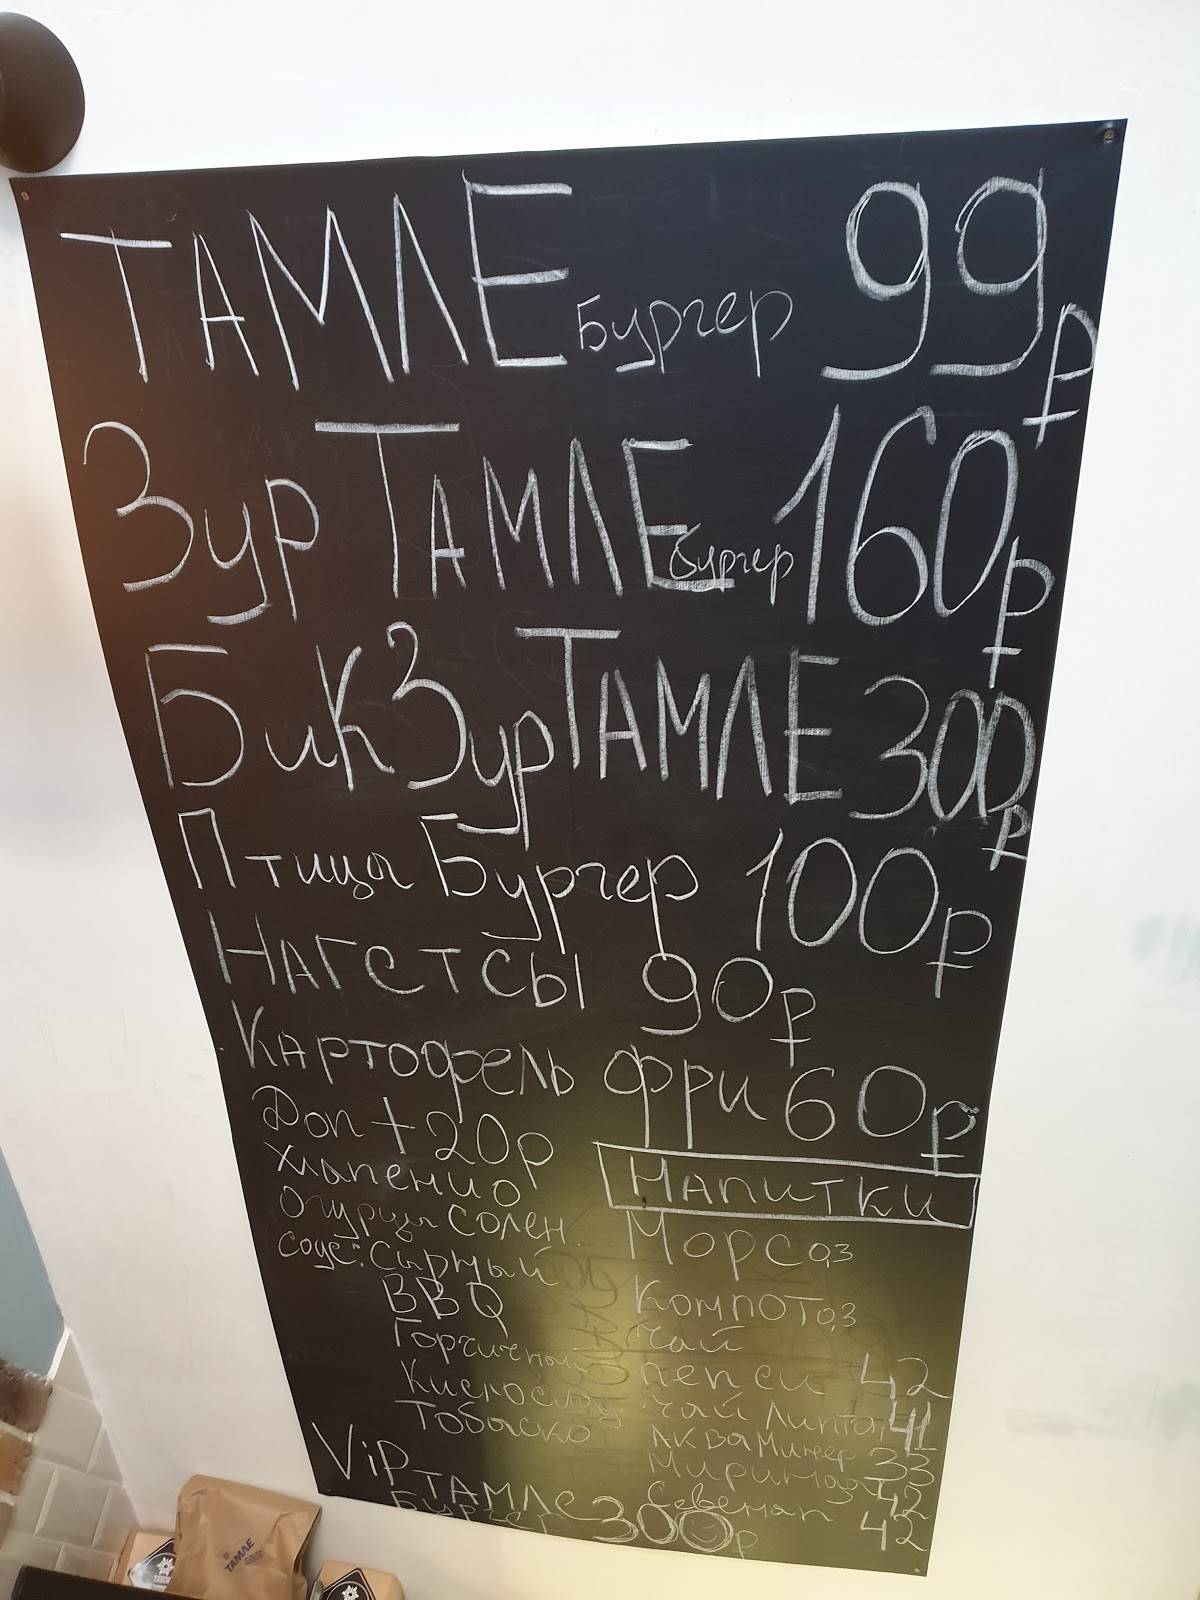 ТАМЛЕ Бургер 99₽
Зур ТАМЛЕ бургер 160₽
Бик Зур ТАМЛЕ 300₽
Птицы Бургер 100₽
НАГЕТСЫ 90₽
КАРТОФЕЛЬ ФРИ 60₽
Доп + 20р
Халапенио
Огурцы солен.
Соус: Сырный
BBQ
Горчичный
Кислослад
Тобаско
НАПИТКИ
Морс 0,3
КОМПОТ 0,3
чай
пепси 42
чай Липтон 41
АКВА Минер 33
Миринда 42
Севенап 42
ViP ТАМЛЕ
Бургер 300р
ТАМЛЕ